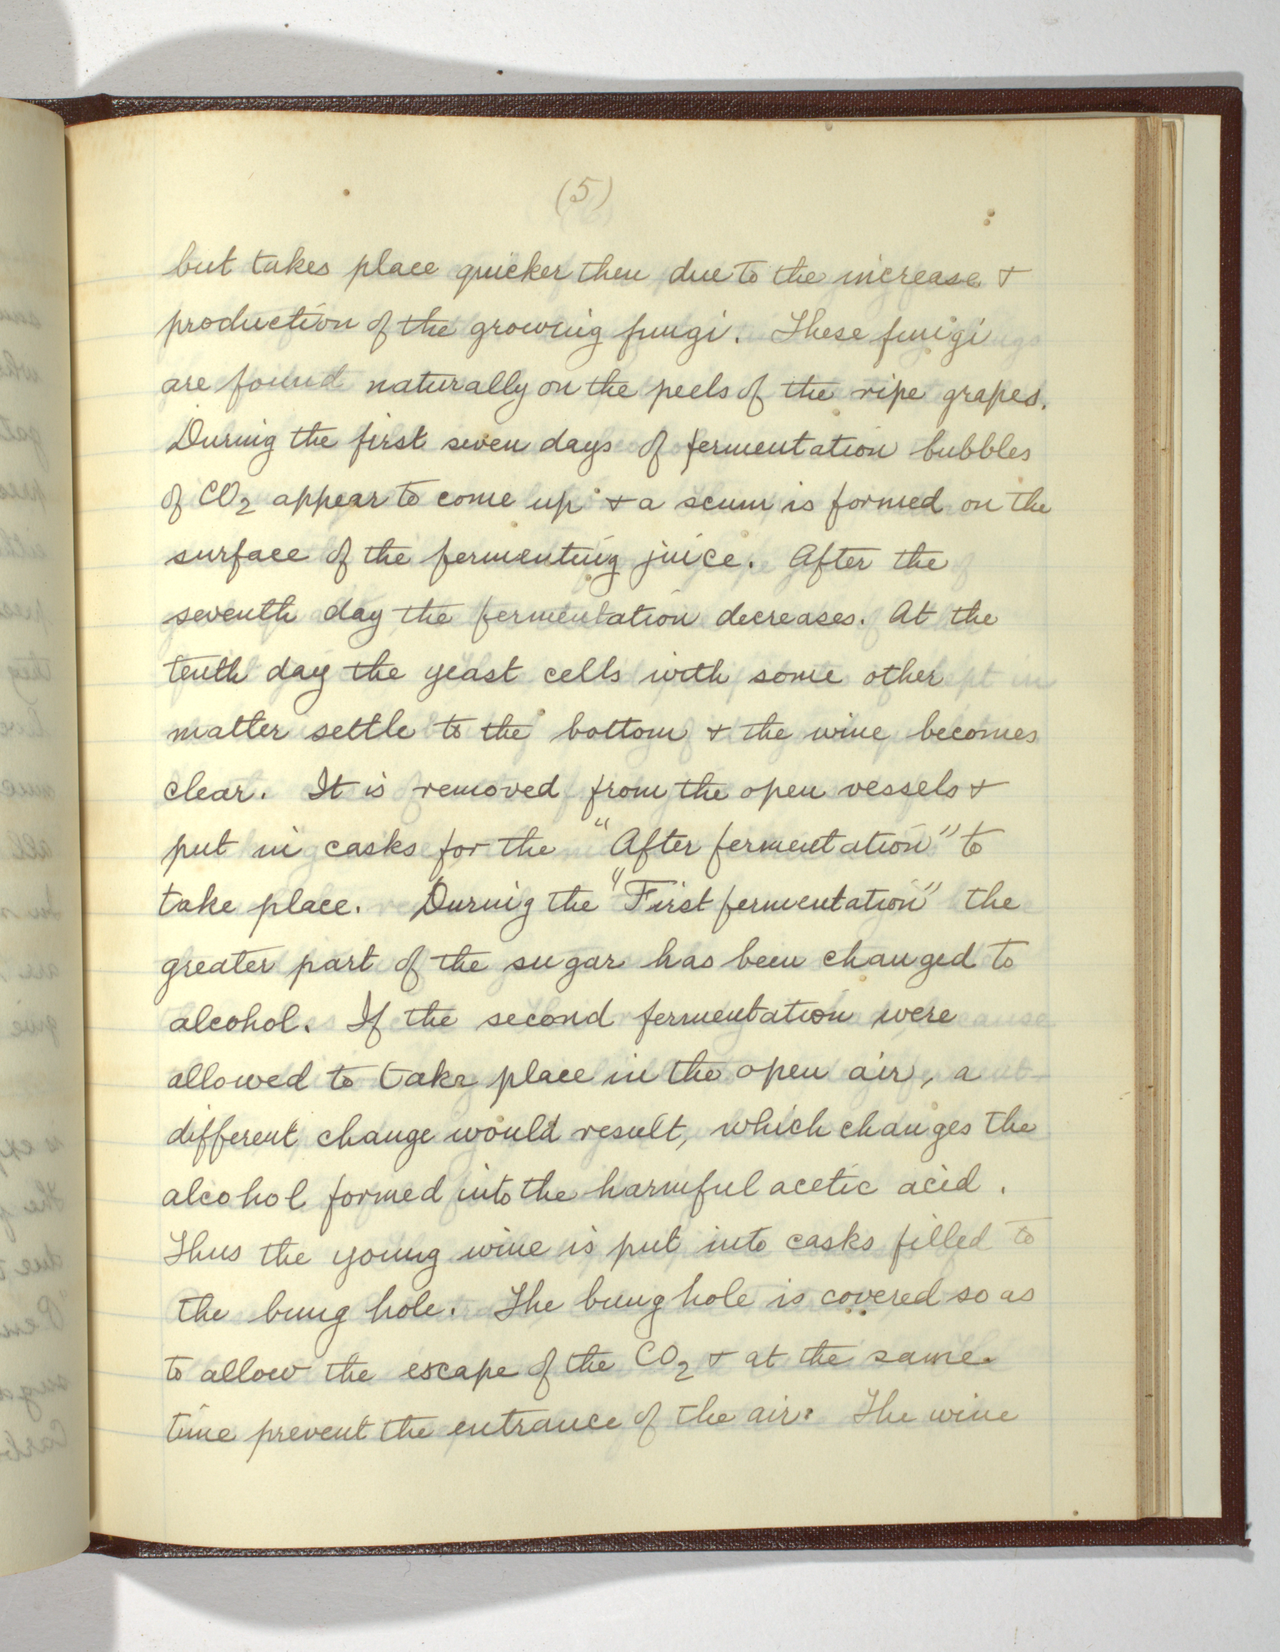 (5)
but takes place quicker then due to the increase &
production of the growing fungi. These fungi
are found naturally on the peels of the ripe grapes.
During the first seven days of fermentation bubbles
of CO2 appear to come up & a scum is formed on the
surface of the fermenting juice. After the
seventh day the fermentation decreases. At the
tenth day the yeast cells with some other
matter settle to the bottom & the wine becomes
clear. It is removed from the open vessels &
put in casks for the "After fermentation" to
take place. During the "First fermentation" the
greater part of the sugar has been changed to
alcohol. If the second fermentation were
allowed to take place in the open air, a
different change would result, which changes the
alcohol formed into the harmful acetic acid.
Thus the young wine is put into casks filled to
the bung hole. The bung hole is covered so as
to allow the escape of the CO2 & at the same
time prevent the entrance of the air. The wine